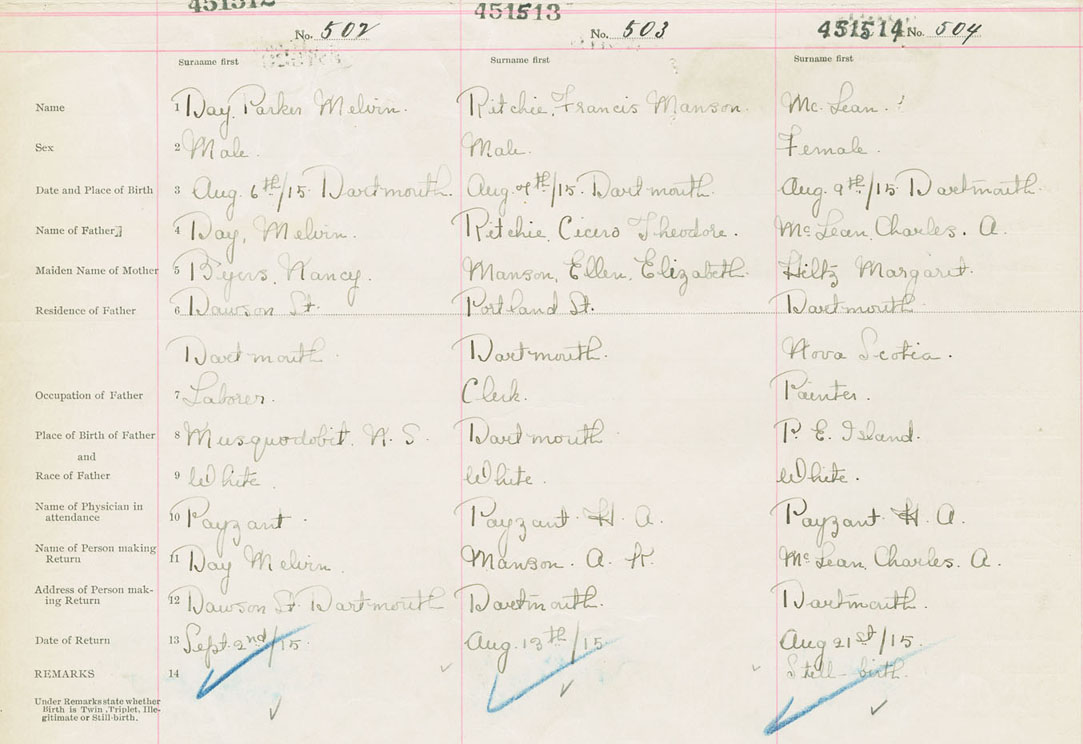 451512 451513 451514
No. 502 No. 503 No. 504
Surname first Surname first Surname first
Name 1 Day, Parker Melvin. Ritchie, Francis Manson. Mc. Lean.
Sex 2 Male. Male. Female.
Date and Place of Birth 3 Aug. 6th/15. Dartmouth. Aug. 7th/15. Dartmouth. Aug. 9th/15 Dartmouth.
Name of Father 4 Day, Melvin. Ritchie, Cicero Theodore. Mc Lean, Charles. A.
Maiden Name of Mother 5 Byers, Nancy. Manson, Ellen, Elizabeth. Hiltz Margaret.
Residence of Father 6 Dawson St. Portland St. Dartmouth
Dartmouth. Dartmouth. Nova Scotia.
Occupation of Father 7 Laborer. Clerk. Painter.
Place of Birth of Father 8 Musquodobit. N. S. Dartmouth P. E. Island.
and
Race of Father 9 White. White. White.
Name of Physician in
attendance 10 Payzant. Payzant. H. A. Payzant. H. A.
Name of Person making
Return 11 Day Melvin. Manson. A. K. Mc Lean, Charles. A.
Address of Person mak-
ing Return 12 Dawson St Dartmouth Dartmouth. Dartmouth.
Date of Return 13 Sept. 2nd/15. Aug. 13th/15 Aug 21st/15.
REMARKS 14 Still-birth.
Under Remarks state whether
Birth is Twin, Triplet, Ille-
gitimate or Still-birth.